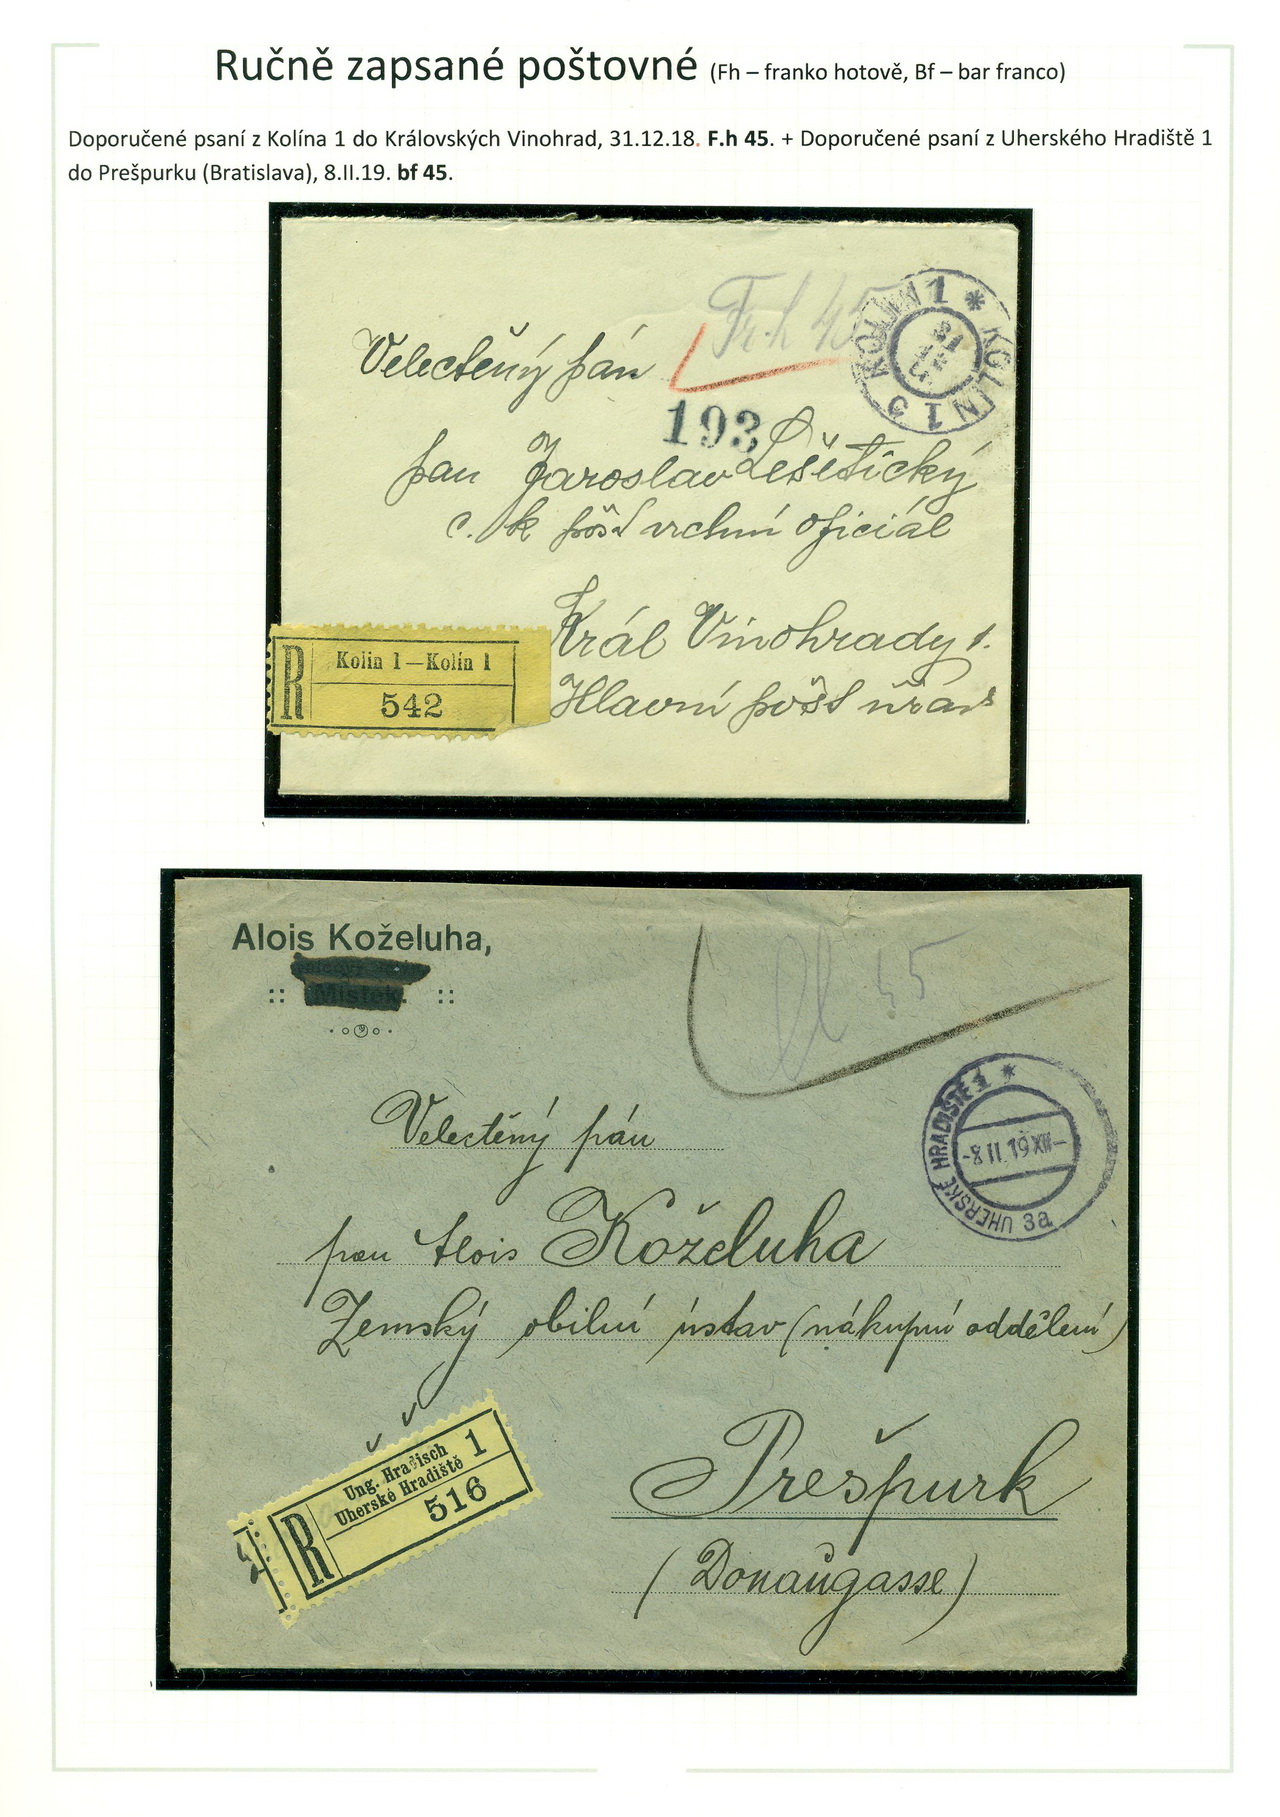 Ručně zapsané poštovné (Fh – franko hotově, Bf – bar franco)
Doporučené psaní z Kolína 1 do Královských Vinohrad, 31.12.18. F.h 45. + Doporučené psaní z Uherského Hradiště 1
do Prešpurku (Bratislava), 8.II.19. bf 45.
Fr.h 45
KOLÍN 1 * KOLIN 1 c
31
Velectěný pán
193
pan Jaroslav Lešetický
c. k pošt vrchní oficiál
Král Vinohrady 1.
Hlavní pošt úřad
R Kolin 1—Kolín 1
542
Alois Koželuha,
:: Místek. ::
45
UHERSKÉ HRADIŠTĚ 1 *
-8 II. 19 XII-
3a
Velectěný pán
pan Alois Koželuha
Zemský obilní ústav (nákupní oddělení)
R Ung. Hradisch 1
Uherské Hradiště
516
Prešpurk
(Donaugasse)